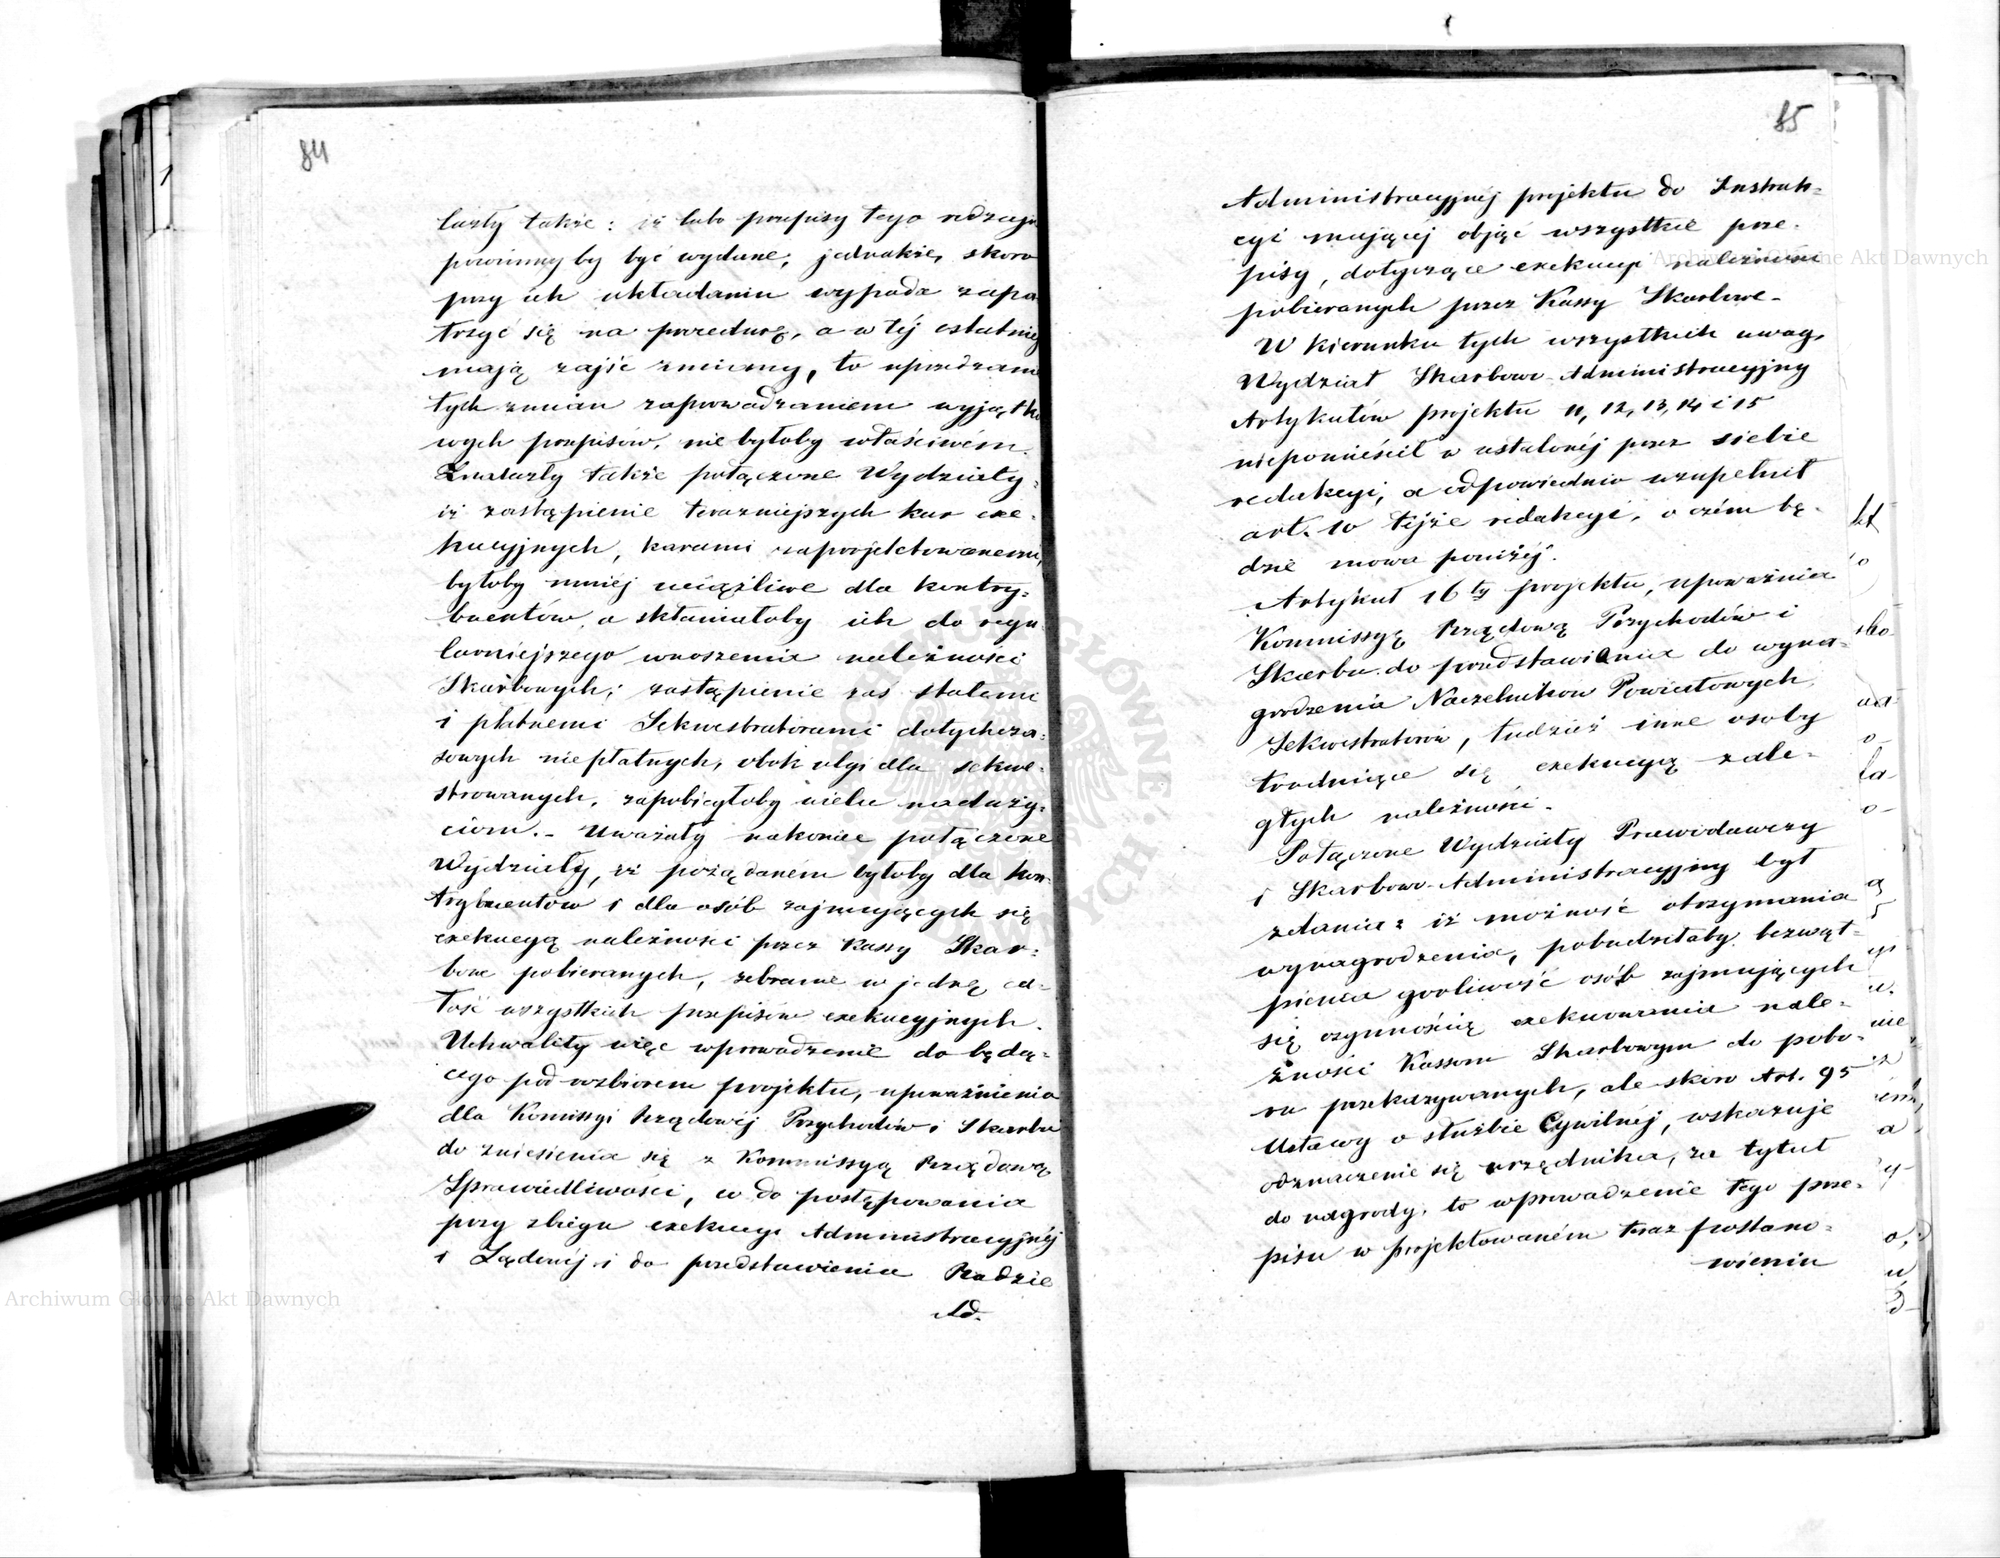 84
lazły także: iż lubo przepisy tego rodzaju
powinnyby być wydane, jednakże, skoro
przy ich układaniu wypada zapa
trzyć się na procedurę, a w tej ostatniej
mają zajść zmiany, to uprzedzanie
tych zmian zaprowadzaniem wyjątko
wych przepisów, nie byłoby właściwém.
Znalazły także połączone Wydziały,
iż zastąpienie teraźniejszych kar exe-
kucyjnych, karami zaprojektowanemi,
byłoby mniej uciążliwe dla kontry-
buentów, a skłaniałoby ich do regu-
larniejszego wnoszenia należności
Skarbowych; zastąpienie zaś stałemi
i płatnemi Sekwestratorami dotychcza-
sowych niepłatnych, obok ulgi dla sekwe-
strowanych, zapobiegłoby wielu naduży-
ciom. - Uważały nakoniec połączone
Wydziały, iż pożądaném byłoby dla kon-
trybuentów i dla osób zajmujących się
exekucyą należności przez Kassy Skar-
bowe pobieranych, zebranie w jedną ca-
łość wszystkich przepisów exekucyjnych.
Uchwaliły więc wprowadzenie do będą-
cego pod rozbiorem projektu, upoważnienia
dla Komissyi Rządowéj Przychodów i Skarbu
do zniesienia się z Kommissyą Rządową
Sprawiedliwości, co do postępowania
przy zbiegu exekucyi Administracyjnéj
i Sądowéj i do przedstawienia Radzie
Ad.
85
Administracyjnéj projektu do Instruk-
cyi mającéj objąć wszystkie prze-
pisy, dotyczące exekucyi należności
pobieranych przez Kassy Skarbowe.-
W kierunku tych wszystkich uwag,
Wydział Skarbowo-Administracyjny
Artykułów projektu 11, 12, 13, 14 i 15
niepomieścił w ustalonéj przez siebie
redakcyi, a odpowiednio uzupełnił
art. 10 téjże redakcyi, o czém bę-
dzie mowa poniżéj.
Artykuł 16ty projektu, upoważnia
Kommissyę Rządową Przychodów i
Skarbu do przedstawiania do wyna-
grodzenia Naczelników Powiatowych,
Sekwestratorów, tudzież inne osoby
trudniące się exekucyą zale-
głych należności.-
Połączone Wydziały Prawodawczy
i Skarbowo-Administracyjny był
zdania: iż możność otrzymania
wynagrodzenia, pobudziłaby bezwąt-
pienia gorliwość osób zajmujących
się czynnością exekwowania nale-
żności Kassom Skarbowym do pobo-
ru przekazywanych, ale skoro Art. 95
Ustawy o służbie Cywilnéj, wskazuje
odznaczenie się urzędnika, za tytuł
do nagrody, to wprowadzenie tego prze-
pisu w projektowaném teraz postano-
wieniu
Archiwum Główne Akt Dawnych
Archiwum Główne Akt Dawnych